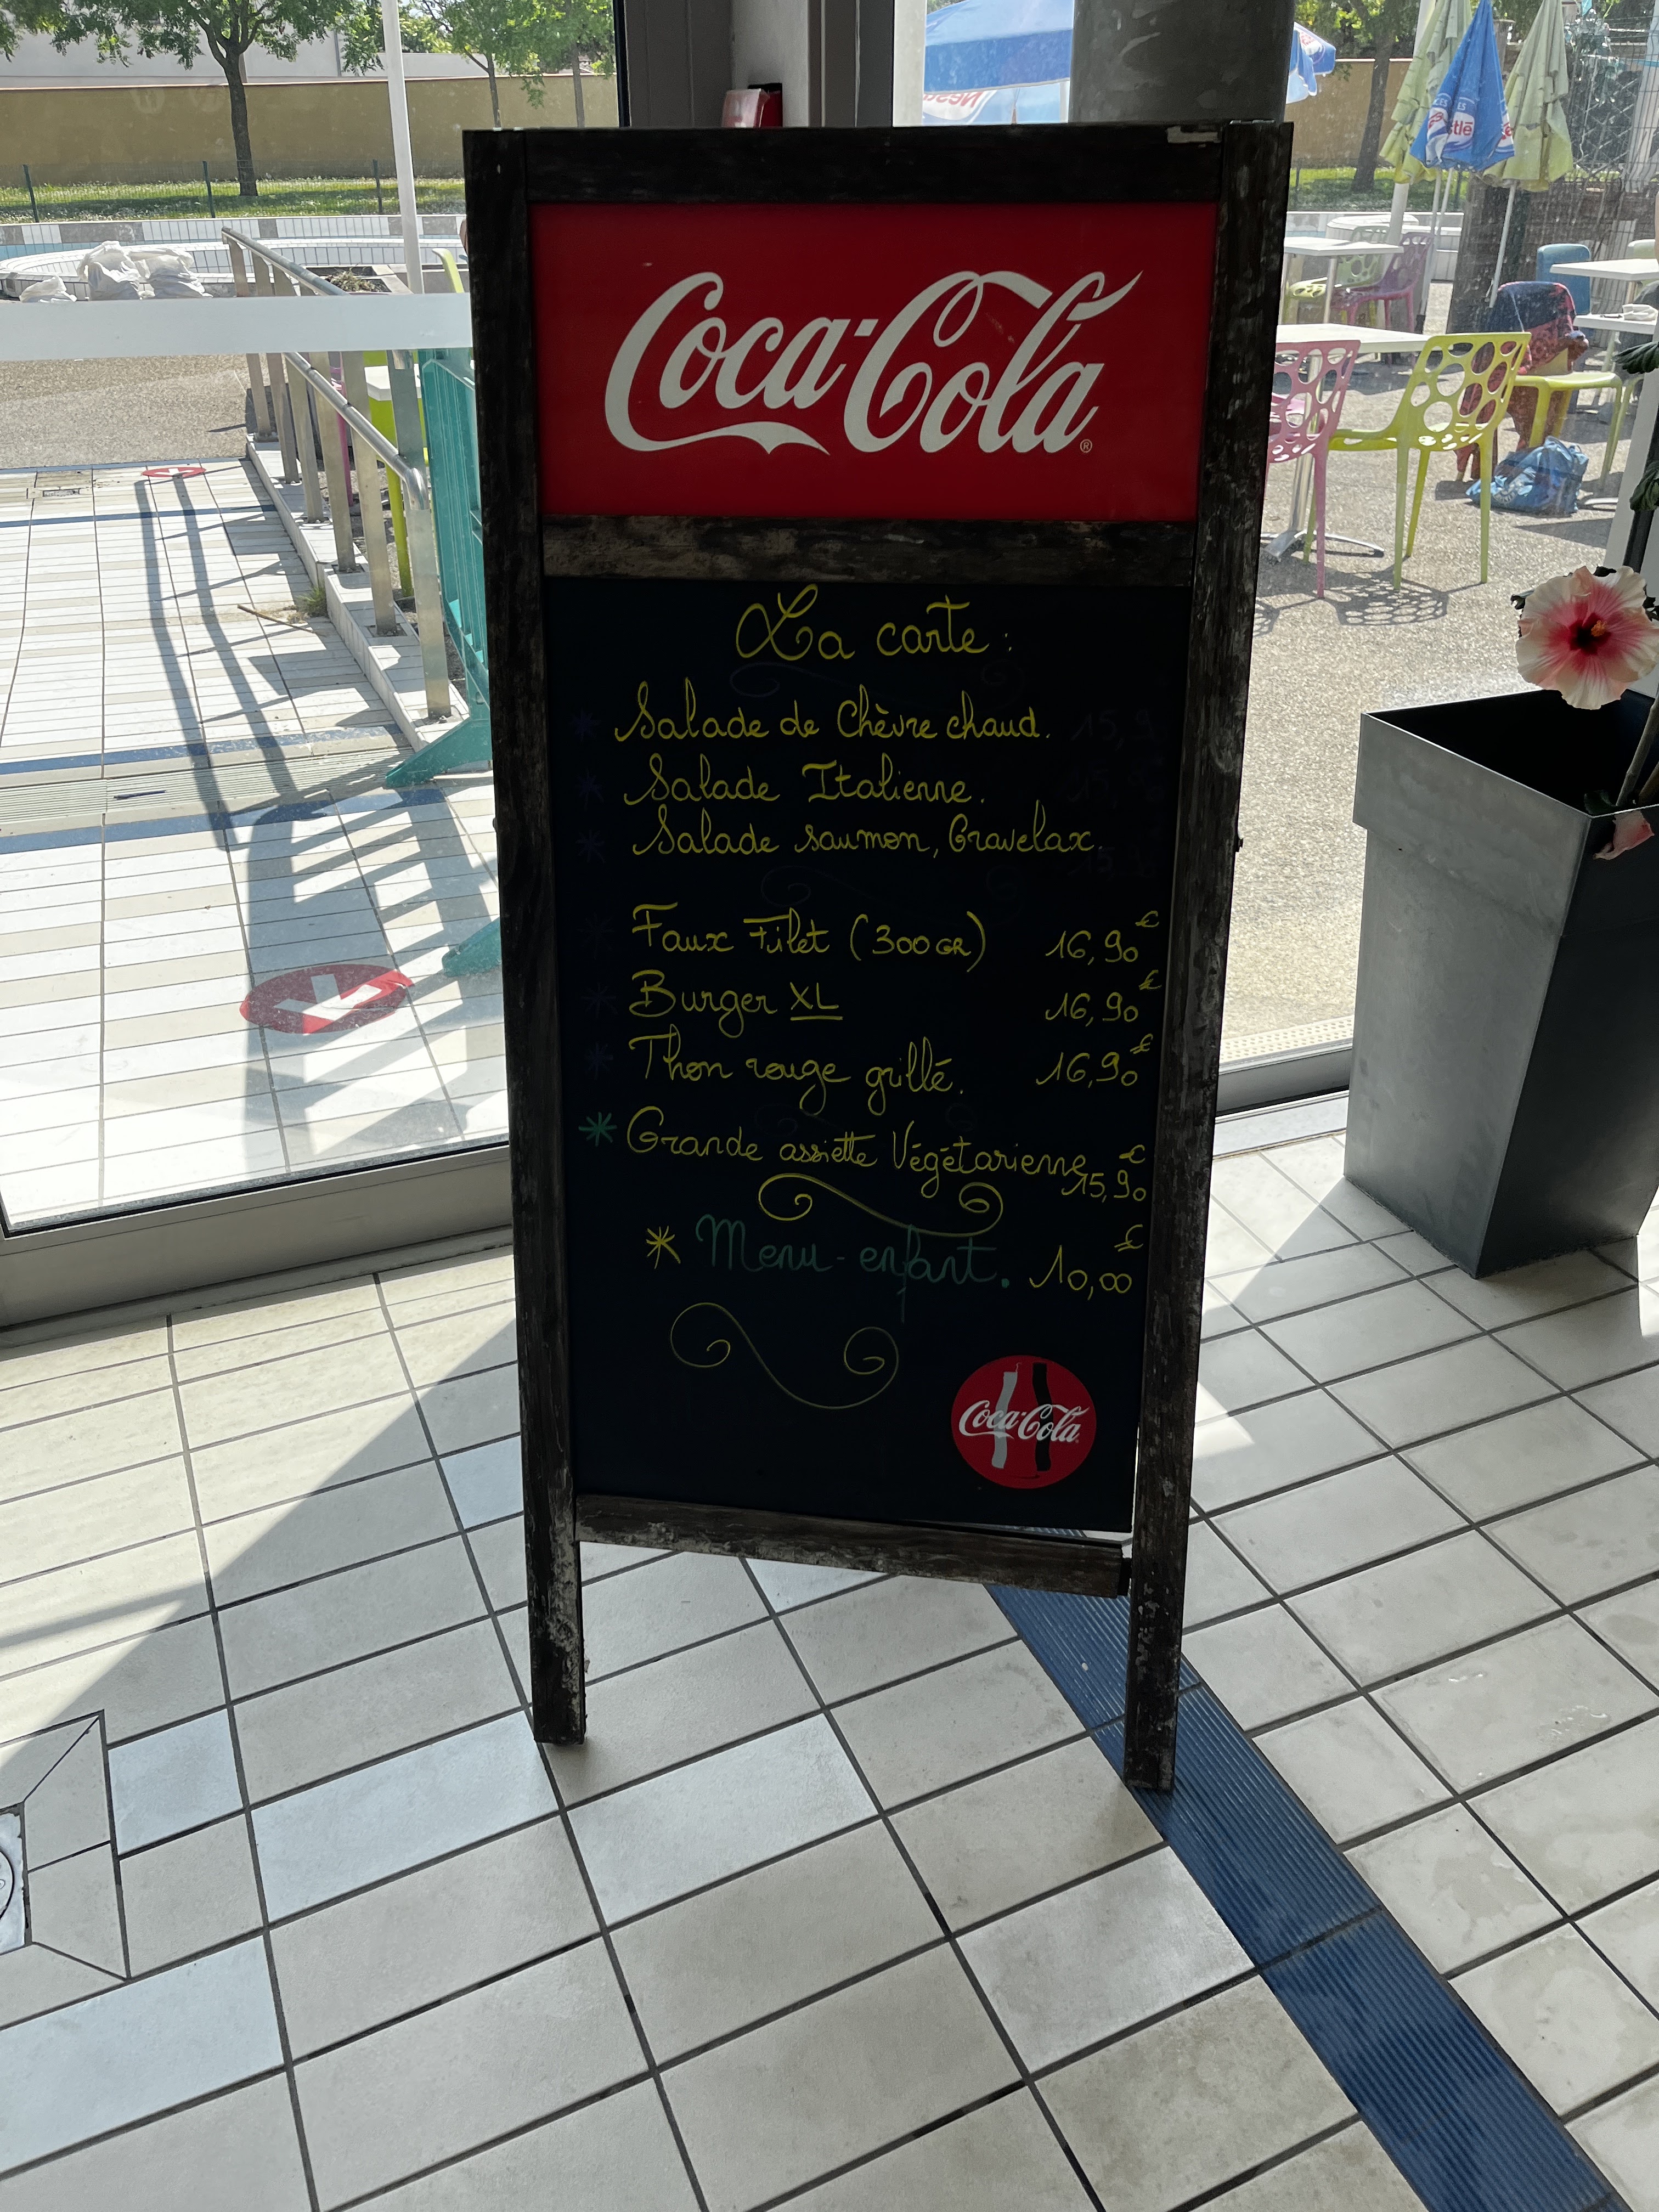 Nestlé
Coca-Cola®
La carte :
* Salade de Chèvre chaud. 15,9
* Salade Italienne.
* Salade saumon, Gravelax.
* Faux Filet (300GR) 16,90€
* Burger XL 16,90€
* Thon rouge grillé. 16,90€
* Grande assiette Végétarienne €
15,90
* Menu-enfant. 10,00€
Coca-Cola